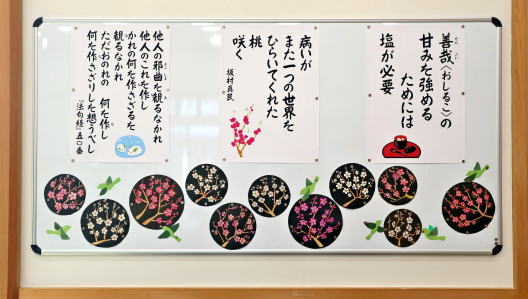 善哉〈おしるこ〉の
甘みを強める
ためには
塩が必要
病いが
また一つの世界を
ひらいてくれた
桃
咲く
坂村真民
他人の邪曲を観るなかれ
他人のこれを作し
かれの何を作さざるを
観るなかれ
ただおのれの 何を作し
何を作さざりしを想うべし
『法句経』五〇番